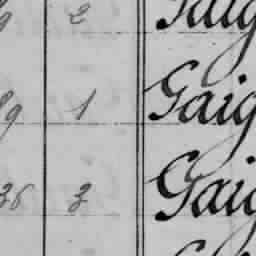 2 Gaig
89 1 Gaig
36 3 Gaig